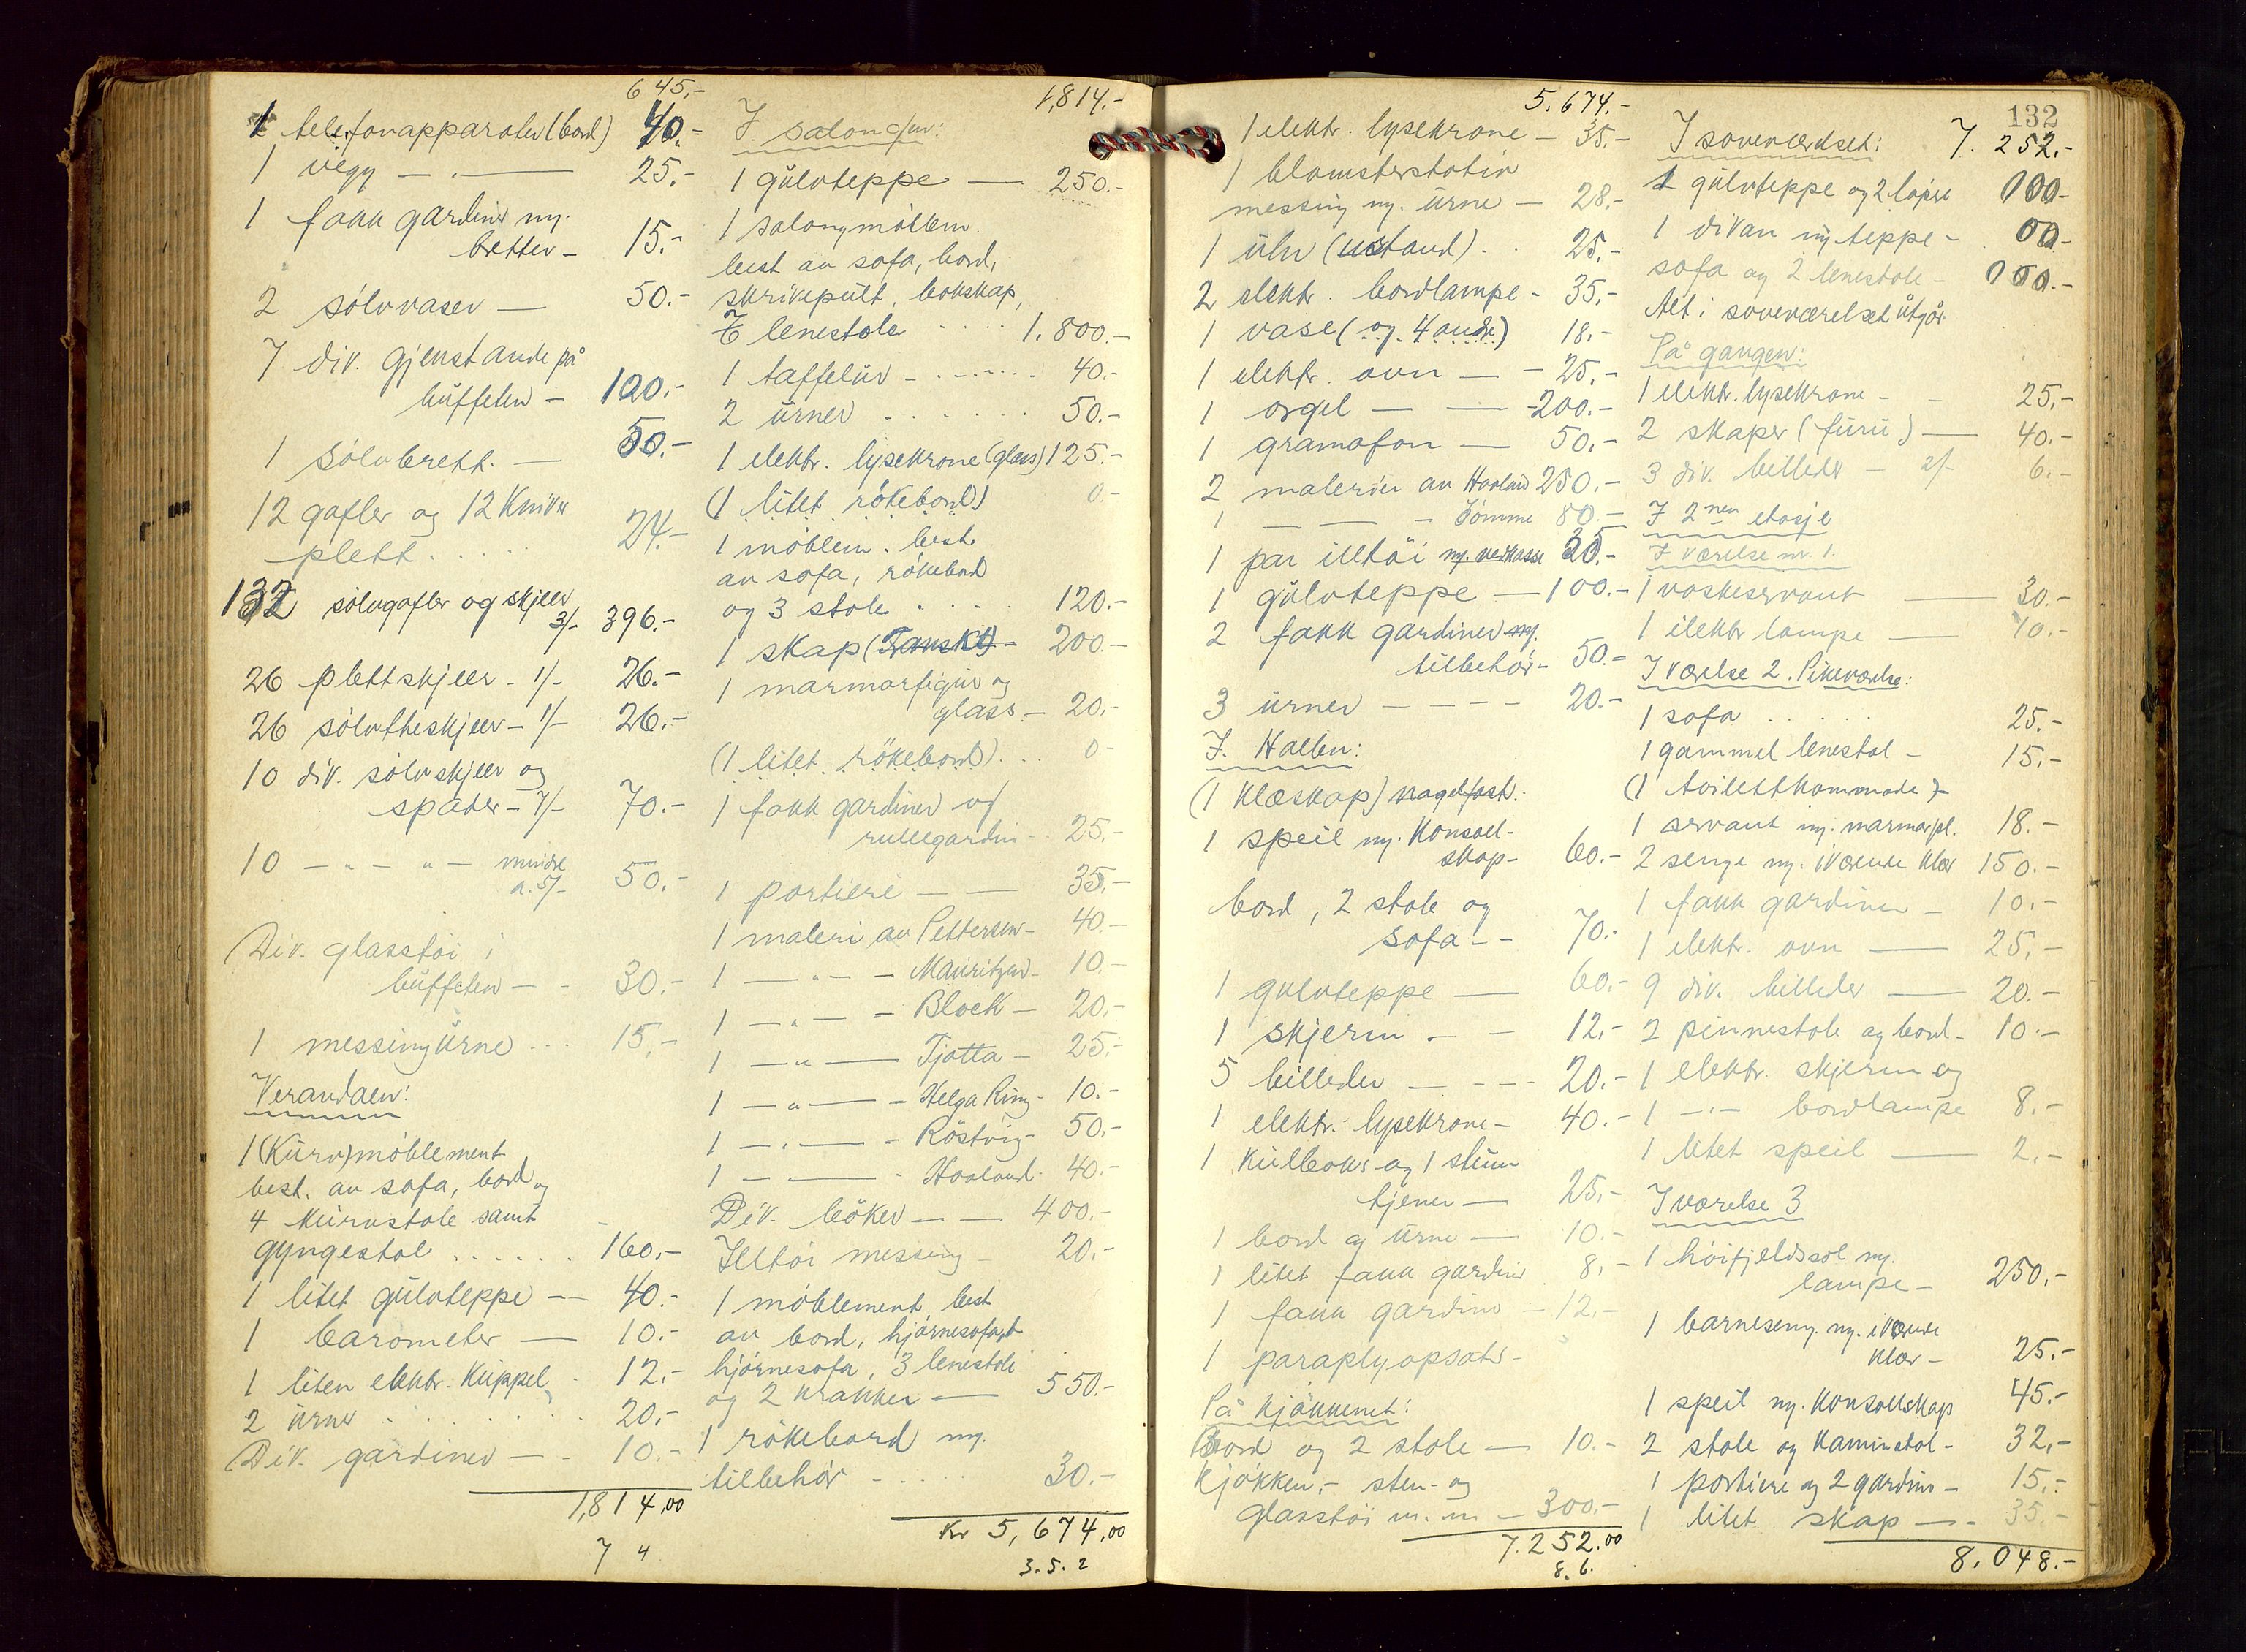 645,-
1 telefonapparater (bord) 40.-
1 vegg — . — 25.-
1 fakk gardiner m/.
bretter - 15.-
2 sölvvaser — 50.-
7 div. gjenstande på
büffeten - 100.-
1 sölvbrett. — 50.-
12 gafler og 12 Kniver
plett. . . . 24.-
132 sölvgafler og skjeer
3/- 396.-
26 plettskjeer - 1/- 26.-
26 sölvtheskjeer - 1/- 26.-
10 div. sölvskjeer og
spader - 7/- 70.-
10 — " — " — mindre
a. 5/- 50.-
Div. glasstöi i
büffeten — - 30.-
1 messingürne . . . 15.-
Verandaen:
1 (Kürv)möblement
best. av sofa, bord og
4 kürvstole samt
gyngestol . . . . . . 160.-
1 litet gülvteppe — 40.-
1 barometer — 10.-
1 liten elektr. Küppel - 12.-
2 ürner . . . . . . 20.-
Div. gardiner — - 10.-
1,814,00
7 4
1,814.-
I salongen:
1 gülvteppe — 250.-
1 salongmöblem.
best av sofa, bord,
skrivepült, bokskap,
7 lenestole . . . . 1.800.-
1 taffelür - . - . - . - 40.-
2 ürner . . . . . . 50.-
1 elektr. lysekrone (glass) 125.-
(1 litet rökebord) 0.-
1 möblem. best.
av sofa, rökebord
og 3 stole . . . . 120.-
1 skap - 200.-
1 marmorfigür og
glass. — 20.-
(1 litet rökebord). . . 0.-
1 fakk gardiner og
rullegardin - . 25.-
1 portiere — — 35.-
1 maleri av Pettersen - 40.-
1 — " — — Mauritzen - 10.-
1 — " — — Block — 20.-
1 — " —— Tjötta — 25.-
1 — " —— Helga Ring - 10.-
1 — . —— Röstvig - 50.-
1 — . —— Haaland - 40.-
Div. böker — — 400.-
Ildtöi messing - 20.-
1 möblement best
av bord, hjörnesofa,
hjörnesofa, 3 lenestole
og 2 krakker — 550.-
1 rökebord m/.
tilbehör - . . . . 30.-
Kr 5,674,00
3. 5. 2
5.674.-
1 elektr. lysekrone — 35.-
1 blomsterstativ
messing m/. ürne — 28.-
1 ühr (ustand). . 25.-
2 elektr. bordlampe - 35.-
1 vase (og 4 andre) 18.-
1 elektr. ovn — - 25.-
1 orgel — — -200.-
1 gramofon — 50.-
2 malerier av Haaland 250.-
1 — — - Tömme 80.-
1 par ildtöi m/. vedkasse 20.-
1 gülvteppe — 100.-
2 fakk gardiner m/.
tilbehör - 50.-
3 ürner — - - - 20.-
I. Hallen:
(1 klæskap) nagelfast.-
1 speil m/. Konsoll-
skap - 60.-
bord, 2 stole og
sofa - - 70.-
1 gulvteppe — 60.-
1 skjerm — — 12,-
5 billeder — - - - 20.-
1 elektr. lysekrone - 40.-
1 Külboks og 1 stüm
tjener — 25,-
1 bord og ürne — 10.-
1 litet fakk gardiner . 8,-
1 fakk gardiner — 12.-
1 paraplyopsats -
På kjökkenet:
Bord og 2 stole — 10.-
Kjökken,- sten- og
glasstöi m. m — 300.-
7.252.00
8. 6.
132
7. 252.-
I soveværelset:
1 gülvteppe og 2 löpere 100-
1 divan m/ teppe - . 00-
sofa og 2 lenestole - 100.-
Alt i soveværelset ütgår.
På gangen:
1 elektr. lysekrone - - 25,-
2 skaper (fürü) — 40.-
3 div. billeder — 2/- 6.-
I 2nen etasje
I værelse nr. 1.
1 vaskeservant — 30.-
1 elektr lampe — 10.-
I værelse 2. Pikeværelse:
1 sofa . . . . . 25.-
1 gammel lenestol - 15.-
(1 toilettkommode) -
1 servant m/. marmorpl. 18.-
2 senge m/. iværende klær 150.-
1 fakk gardiner — 10.-
1 elektr. ovn — 25,-
9 div. billeder — 20.-
2 pinnestole og bord - 10.-
1 elektr. skjerm og
1 - " - bordlampe 8,-
1 litet speil — 2,-
I værelse 3
1 höifjeldssol m/.
lampe - 250.-
1 barneseng m/. iværende
klær - 25.-
1 speil m/. Konsollskap 45.-
2 stole og Kaminstol - 32,-
1 portiere og 2 gardiner - 15,-
1 litet skap — - 35.-
8.048.-